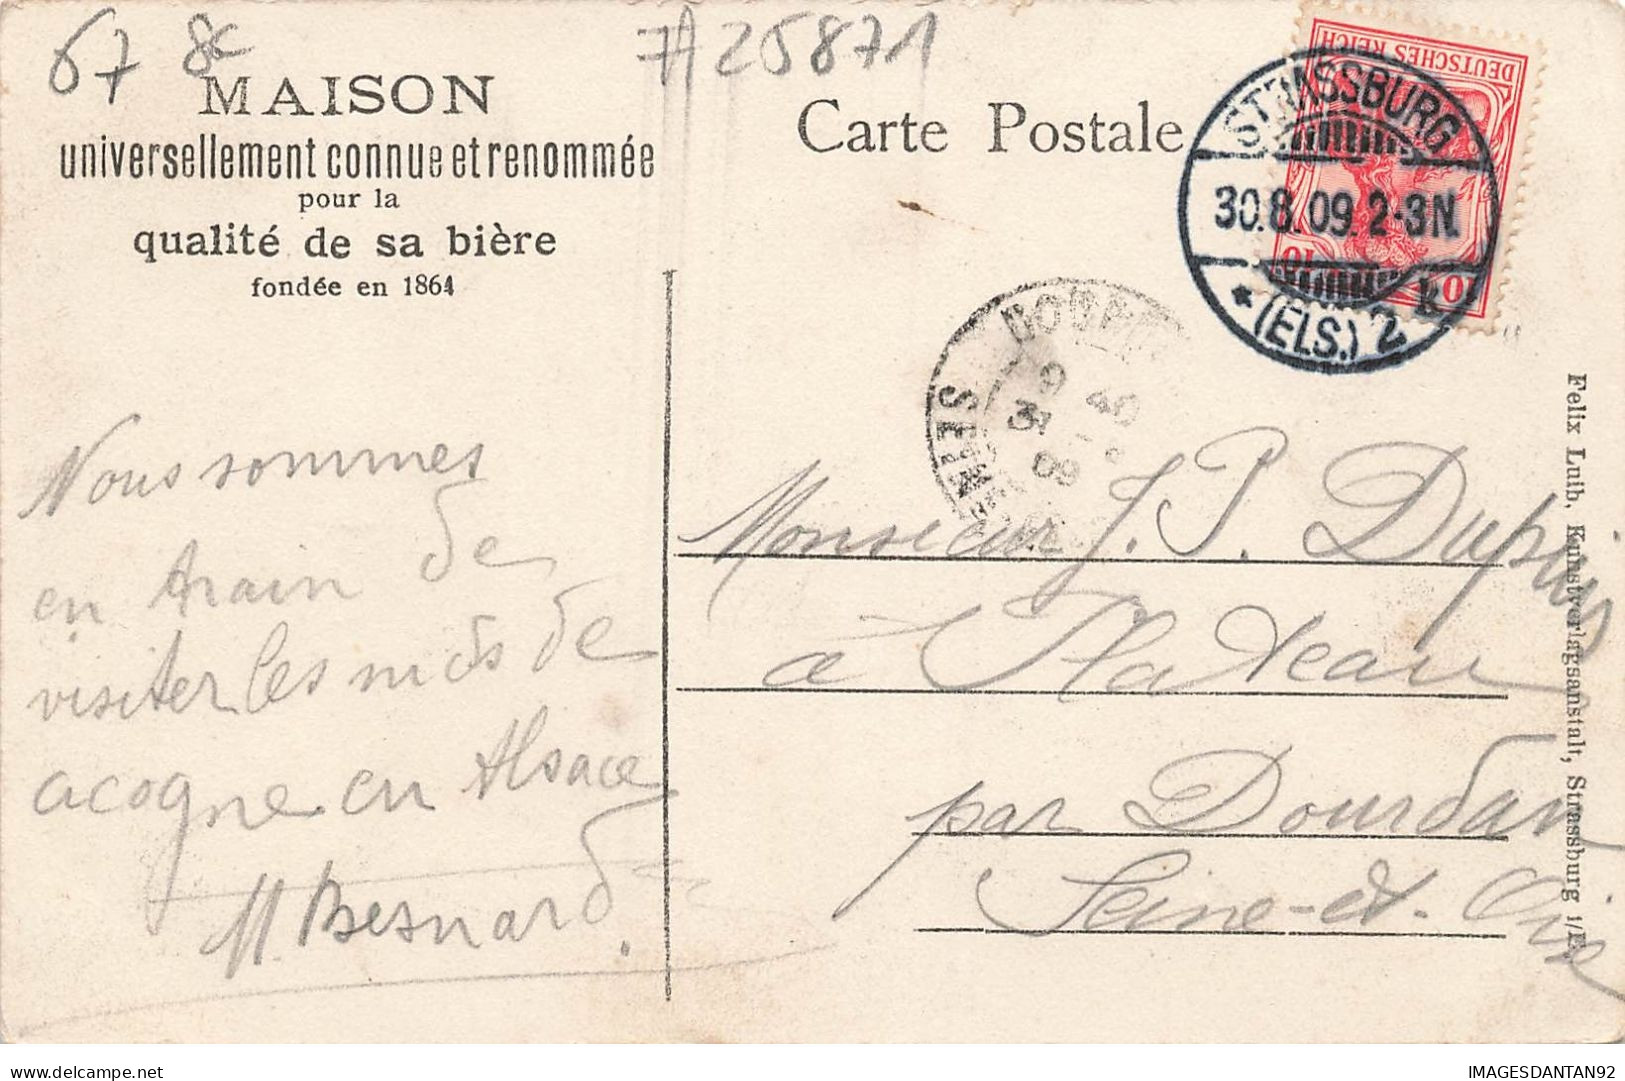 67 8c
#A25871
MAISON
universellement connue et renommée
pour la
qualité de sa bière
fondée en 1864
Carte Postale
DEUTSCHES REICH
10 10
STRASSBURG
30.8.09. 2-3N.
* (ELS.) 2 k
SEINE
9 40
31
09
Felix Luib, Kunstverlagsanstalt, Strassburg i/E.
Nous sommes
en train de
visiter les nids de
acogne en Alsace
M. Besnard.
Monsieur J. P. Dupuis
à Plateau
par Dourdan
Seine-et-Oise
IMAGESDANTAN92